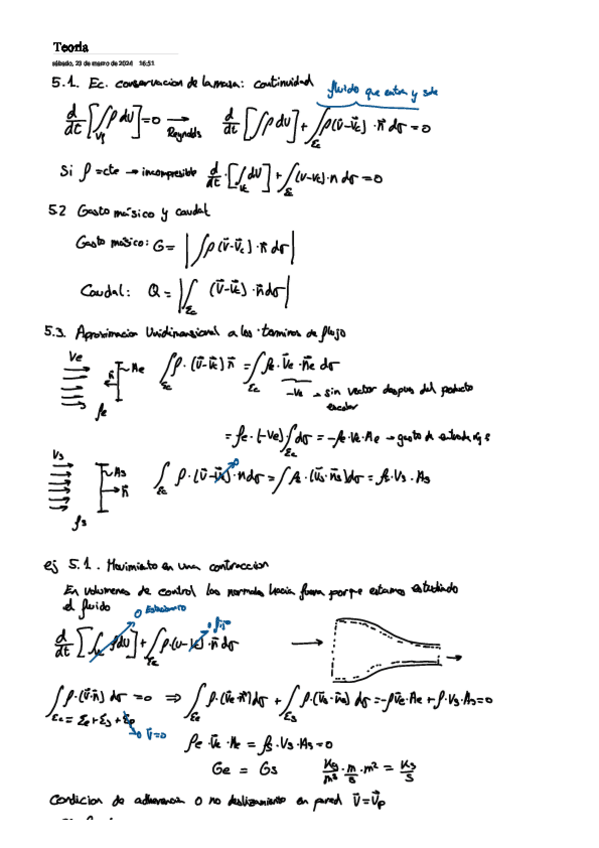 Teoría
sábado, 23 de marzo de 2024 16:51
5.1. Ec. conservacion de la masa: continuidad
fluido que entra y sale
d/dt [∫_Vf ρ dU] = 0 → Reynolds d/dt [∫ρ dU] + ∫_Σc ρ(v̄-v̄c)·n̄ dσ = 0
Si ρ = cte → incompresible d/dt·[∫_Vc dU] + ∫_Σc (v-vc)·n dσ = 0
5.2 Gasto másico y caudal
Gasto másico: G = |∫ρ(v̄-v̄c)·n̄ dσ|
Caudal: Q = |∫_Σc (v̄-v̄c)·n̄ dσ|
5.3. Aproximacion Unidimensional a los terminos de flujo
Ve
Ae
n̄
ρe
∫_Σc ρ·(v̄-v̄c) n̄ = ∫_Σc ρe·v̄e·n̄e dσ
-Ve → sin vector despues del producto
escalar
= ρe·(-Ve)∫_Σc dσ = -ρe·Ve·Ae → gasto de entrada
Vs
As
n̄
ρs
∫_Σc ρ·(v̄-v̄c)·n dσ = ∫ρs·(v̄s·n̄s)dσ = ρs·Vs·As
0
ej 5.1. Movimiento en una contraccion
En volumenes de control las normales hacia fuera porque estamos estudiando
el fluido
0 Estacionario
0 fijo
d/dt [∫_Vc ρdU] + ∫_Σc ρ·(v-vc)·n̄ dσ
∫ρ·(v̄·n̄) dσ = 0 ⇒ ∫_Σe ρ·(v̄e·n̄)dσ + ∫_Σs ρ·(v̄s·n̄s)dσ = -ρVe·Ae + ρ·Vs·As = 0
Σc = Σe + Σs + Σp
v̄=0
ρe·Ve·Ae = ρs·Vs·As = 0
Ge = Gs Kg/m³·m/s·m² = Kg/s
Condicion de adherencia o no deslizamiento en pared v̄ = v̄p